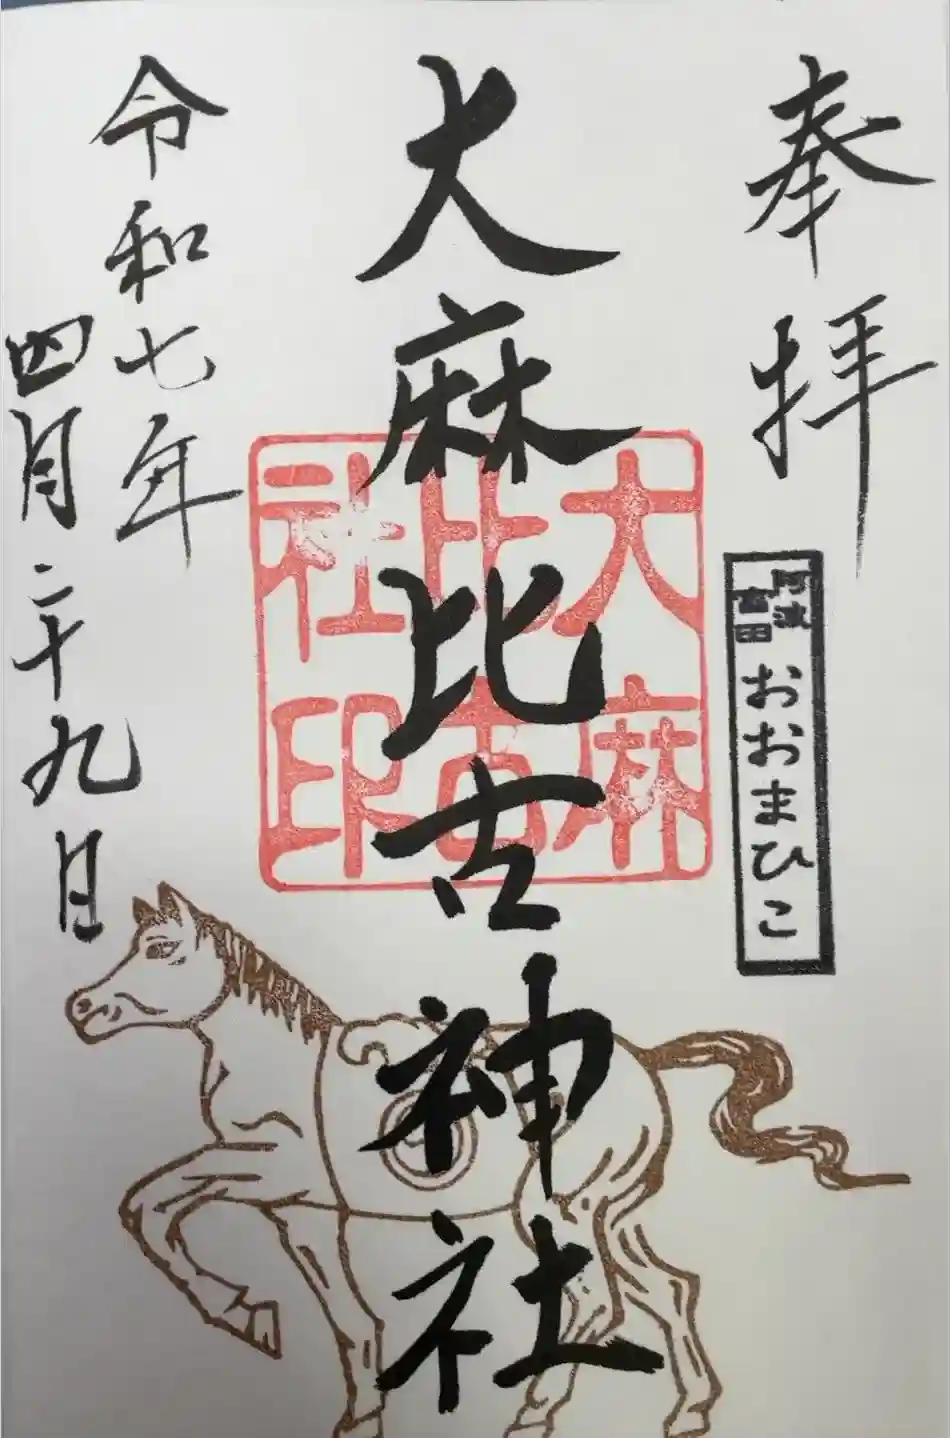 奉拝
阿波
吉田
おおまひこ
大麻比古神社
大麻
比古
社印
令和七年
四月二十九日